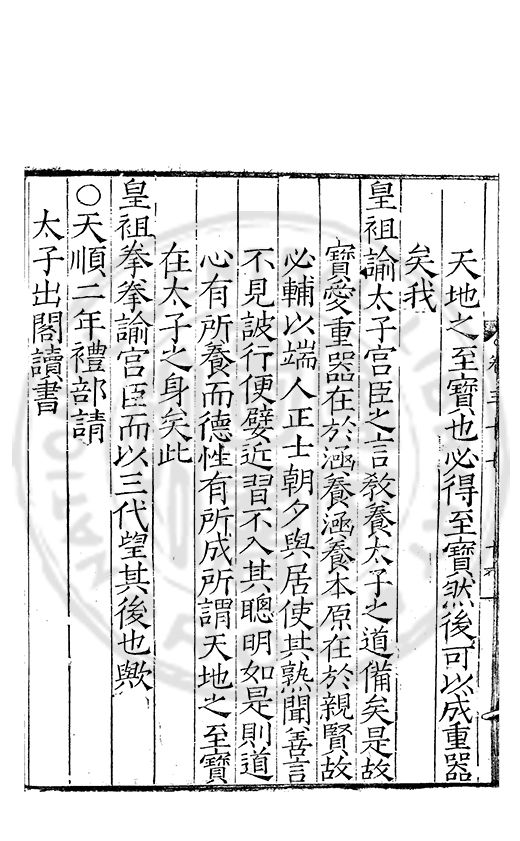 天地之至寶也必得至寶然後可以成重器
矣我
皇祖諭太子宮臣之言教養太子之道備矣是故
寶愛重器在於涵養涵養本原在於親賢故
必輔以端人正士朝夕與居使其熟聞善言
不見詖行便嬖近習不入其聰明如是則道
心有所養而德性有所成所謂天地之至寶
在太子之身矣此
皇祖拳拳諭宮臣而以三代望其後也歟
○天順二年禮部請
太子出閣讀書